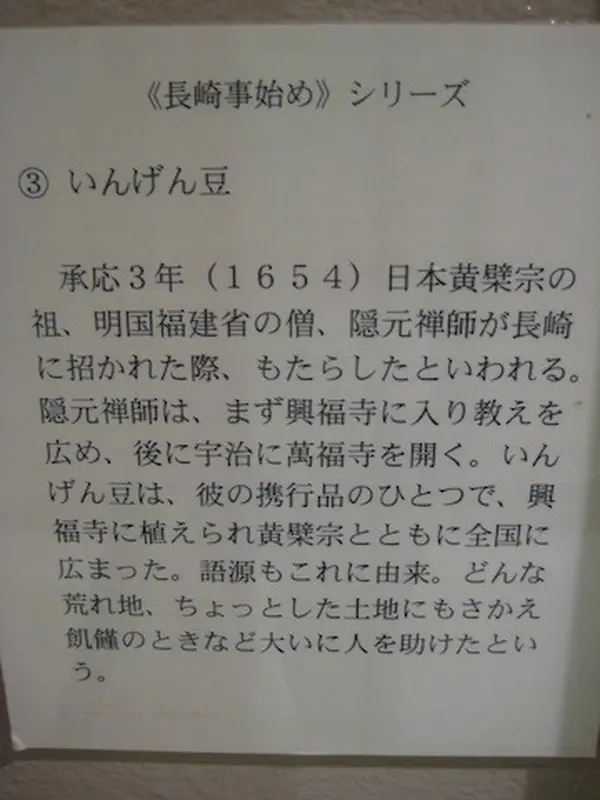 《長崎事始め》シリーズ
③ いんげん豆
承応３年（１６５４）日本黄檗宗の
祖、明国福建省の僧、隠元禅師が長崎
に招かれた際、もたらしたといわれる。
隠元禅師は、まず興福寺に入り教えを
広め、後に宇治に萬福寺を開く。いん
げん豆は、彼の携行品のひとつで、興
福寺に植えられ黄檗宗とともに全国に
広まった。語源もこれに由来。どんな
荒れ地、ちょっとした土地にもさかえ
飢饉のときなど大いに人を助けたとい
う。